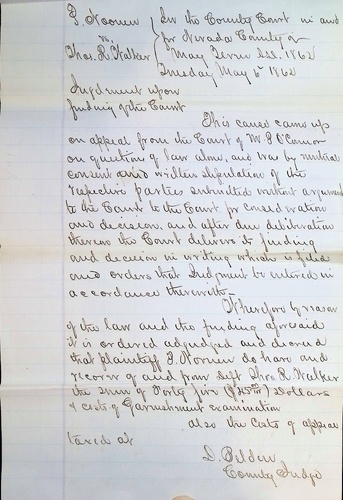 J. Noonen } In the County Court in and
vs. } for Nevada County
Thos. R. Walker } May Term A.D. 1862
Tuesday May 6th 1862
Judgment upon
finding of the Court
This cause came up
on appeal from the Court of M. P. O'Connor
on question of law alone, and was by mutual
consent and written stipulation of the
respective parties submitted without argument
to the Court to the Court for consideration
and decision, and after due deliberation
thereon the Court delivers its finding
and decision in writing which is filed
and orders that Judgment be entered in
accordance therewith
Wherefore by reason
of the law and the finding aforesaid
it is ordered adjudged and decreed
that plaintiff J. Noonen do have and
recover of and from deft Thos. R. Walker
the sum of Forty five ($45) Dollars
& costs of Garnishment examination
also the Costs of appeal
taxed at
D. Belden
County Judge